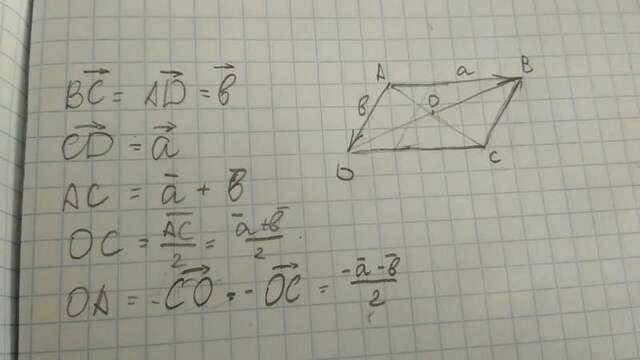 \overrightarrow{BC} = \overrightarrow{AD} = \vec{b}
\overrightarrow{CD} = \vec{a}
AC = \bar{a} + \bar{b}
OC = \frac{\overline{AC}}{2} = \frac{\bar{a}+\bar{b}}{2}
OA = -\overrightarrow{CO} = -\overrightarrow{OC} = \frac{-\bar{a}-\bar{b}}{2}
A a B
b O
D C